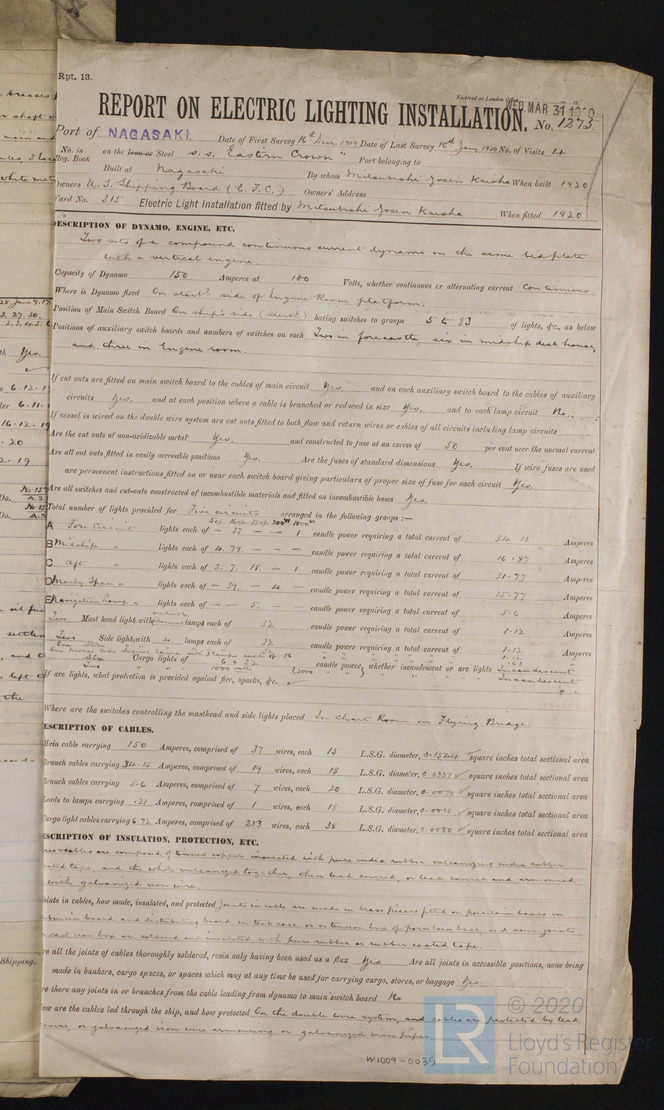 Rpt. 13.
Received at London Office WED MAR 31 1920
REPORT ON ELECTRIC LIGHTING INSTALLATION. No. 1273.
Port of NAGASAKI. Date of First Survey 16th Decr. 1919 Date of Last Survey 10th Jany 1920 No. of Visits 4
No. in Reg. Book on the Iron or Steel s.s. "Eastern Crown" Port belonging to
Built at Nagasaki By whom Mitsubishi Zosen Kaisha When built 1920
Owners U.S. Shipping Board (E.F.C.) Owners' Address
Yard No. 315 Electric Light Installation fitted by Mitsubishi Zosen Kaisha When fitted 1920
DESCRIPTION OF DYNAMO, ENGINE, ETC.
Two sets of a compound continuous current dynamo on the same bedplate
with a vertical engine.
Capacity of Dynamo 150 Amperes at 100 Volts, whether continuous or alternating current Continuous
Where is Dynamo fixed On starbd. side of Engine Room platform.
Position of Main Switch Board On ship's side (Starbd.) having switches to groups 5 to 83 of lights, &c., as below
Positions of auxiliary switch boards and numbers of switches on each Two in forecastle, six in midship deck house,
and three in Engine room.
If cut outs are fitted on main switch board to the cables of main circuit Yes. and on each auxiliary switch board to the cables of auxiliary
circuits Yes. and at each position where a cable is branched or reduced in size Yes. and to each lamp circuit No.
If vessel is wired on the double wire system are cut outs fitted to both flow and return wires or cables of all circuits including lamp circuits
Are the cut outs of non-oxidizable metal Yes. and constructed to fuse at an excess of 50 per cent over the normal current
Are all cut outs fitted in easily accessible positions Yes. Are the fuses of standard dimensions Yes. If wire fuses are used
are permanent instructions fitted on or near each switch board giving particulars of proper size of fuse for each circuit Yes.
Are all switches and cut-outs constructed of incombustible materials and fitted on incombustible bases Yes.
Total number of lights provided for Five circuits arranged in the following groups :—
A Fore Circuit lights each of — 57 — — 1 candle power requiring a total current of 34.15 Amperes
B Midship " lights each of 4. 79. — — candle power requiring a total current of 16.87 Amperes
C Aft " lights each of 3. 7. 18. — 1 candle power requiring a total current of 31.77 Amperes
D Machy. Space " lights each of — 29. — 4. — candle power requiring a total current of 15.77 Amperes
E Navigation Lamp " lights each of — — 5. — candle power requiring a total current of 5.6 Amperes
Two Mast head light with lamps each of 32 candle power requiring a total current of 1.12 Amperes
Two Side lights with lamps each of 32 candle power requiring a total current of 1.12 Amperes
Six Cargo lights of 6 x 32 candle power, whether incandescent or arc lights Incandescent
If arc lights, what protection is provided against fire, sparks, &c.
Where are the switches controlling the masthead and side lights placed In Chart Room on Flying Bridge.
DESCRIPTION OF CABLES.
Main cable carrying 150 Amperes, comprised of 37 wires, each 15 L.S.G. diameter, square inches total sectional area
Branch cables carrying 34.15 Amperes, comprised of 19 wires, each 18 L.S.G. diameter, square inches total sectional area
Branch cables carrying 5.6 Amperes, comprised of 7 wires, each 20 L.S.G. diameter, 0.0070 square inches total sectional area
Leads to lamps carrying .21 Amperes, comprised of 1 wires, each 18 L.S.G. diameter, 0.0018 square inches total sectional area
Cargo light cables carrying 6.72 Amperes, comprised of 283 wires, each 38 L.S.G. diameter, 0.0080 square inches total sectional area
DESCRIPTION OF INSULATION, PROTECTION, ETC.
cables are composed of tinned copper insulated with pure india rubber vulcanizing india rubber
coated tape, and the whole vulcanized together, then lead covered, or lead covered and armoured
with galvanized iron wire.
Joints in cables, how made, insulated, and protected Joints in cable are made on brass pieces fitted on porcelain bases in
board and distributing board in teak case or extension box of porcelain base, and some joints
cast iron box are soldered and insulated with pure rubber or rubber coated tape.
Are all the joints of cables thoroughly soldered, resin only having been used as a flux Yes Are all joints in accessible positions, none being
made in bunkers, cargo spaces, or spaces which may at any time be used for carrying cargo, stores, or baggage Yes
Are there any joints in or branches from the cable leading from dynamo to main switch board No
How are the cables led through the ship, and how protected On the double wire system, and cables are protected by lead
covers, or galvanized iron wire armouring or galvanized iron pipes.
W1009-0035
LR
© 2020
Lloyd's Register
Foundation